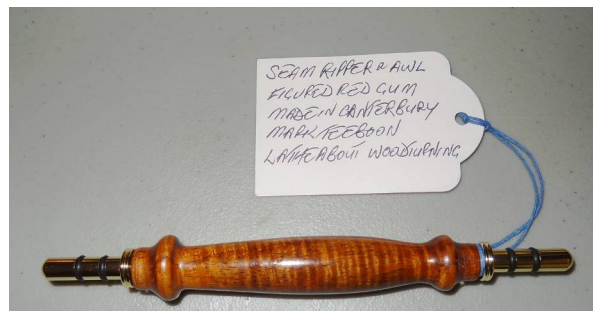 SEAM RIPPER & AWL
FIGURED RED GUM
MADE IN CANTERBURY
MARK TEEBOON
LATHEABOUT WOODTURNING